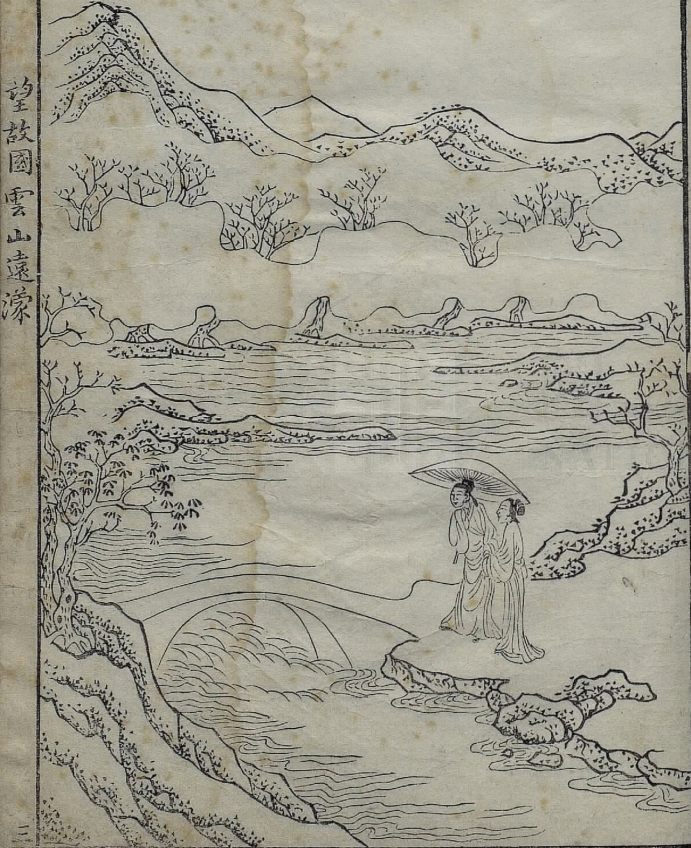 望故國雲山遠濛
三